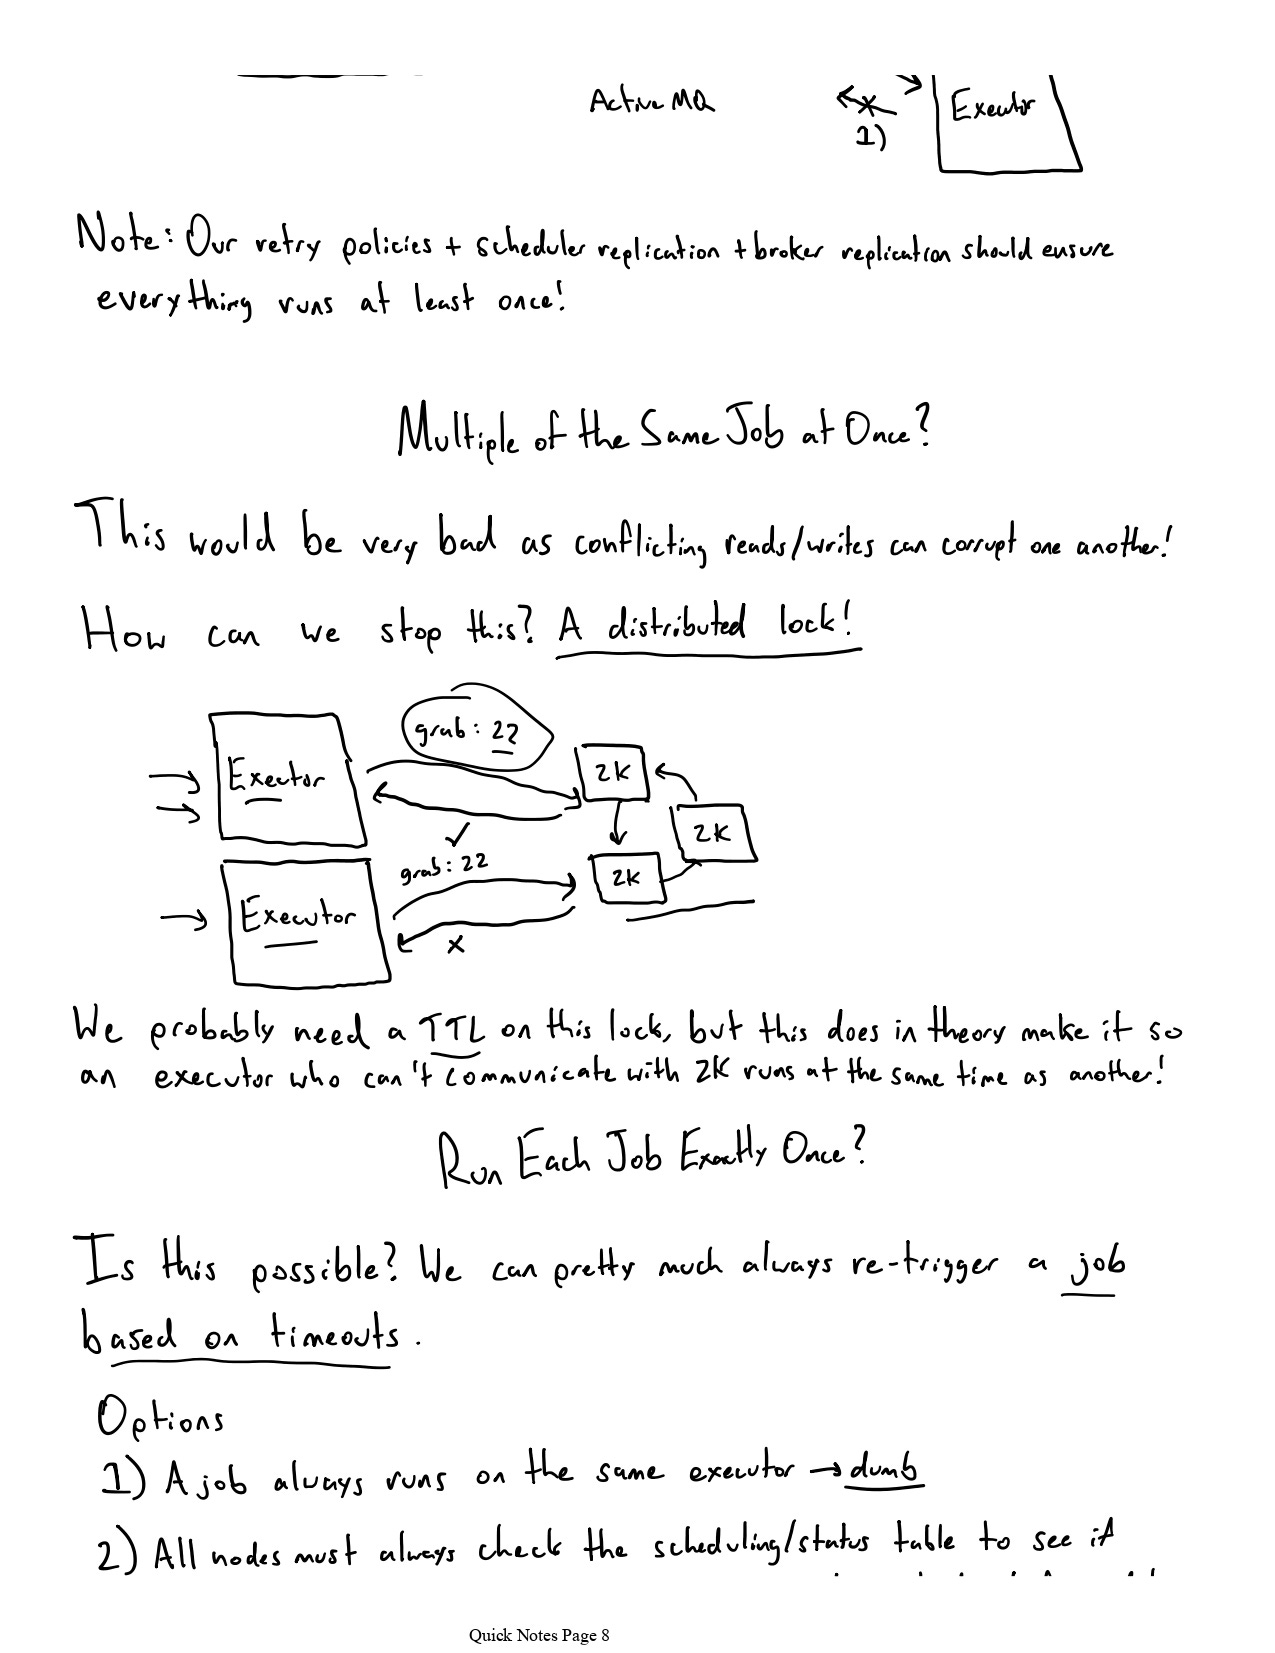 ActiveMQ
Executor
1)
Note: Our retry policies + scheduler replication + broker replication should ensure
everything runs at least once!
Multiple of the Same Job at Once?
This would be very bad as conflicting reads/writes can corrupt one another!
How can we stop this? A distributed lock!
grab: 22
Executor
ZK
ZK
✓
grab: 22
ZK
Executor
x
We probably need a TTL on this lock, but this does in theory make it so
an executor who can't communicate with ZK runs at the same time as another!
Run Each Job Exactly Once?
Is this possible? We can pretty much always re-trigger a job
based on timeouts.
Options
1) A job always runs on the same executor → dumb
2) All nodes must always check the scheduling/status table to see if
Quick Notes Page 8